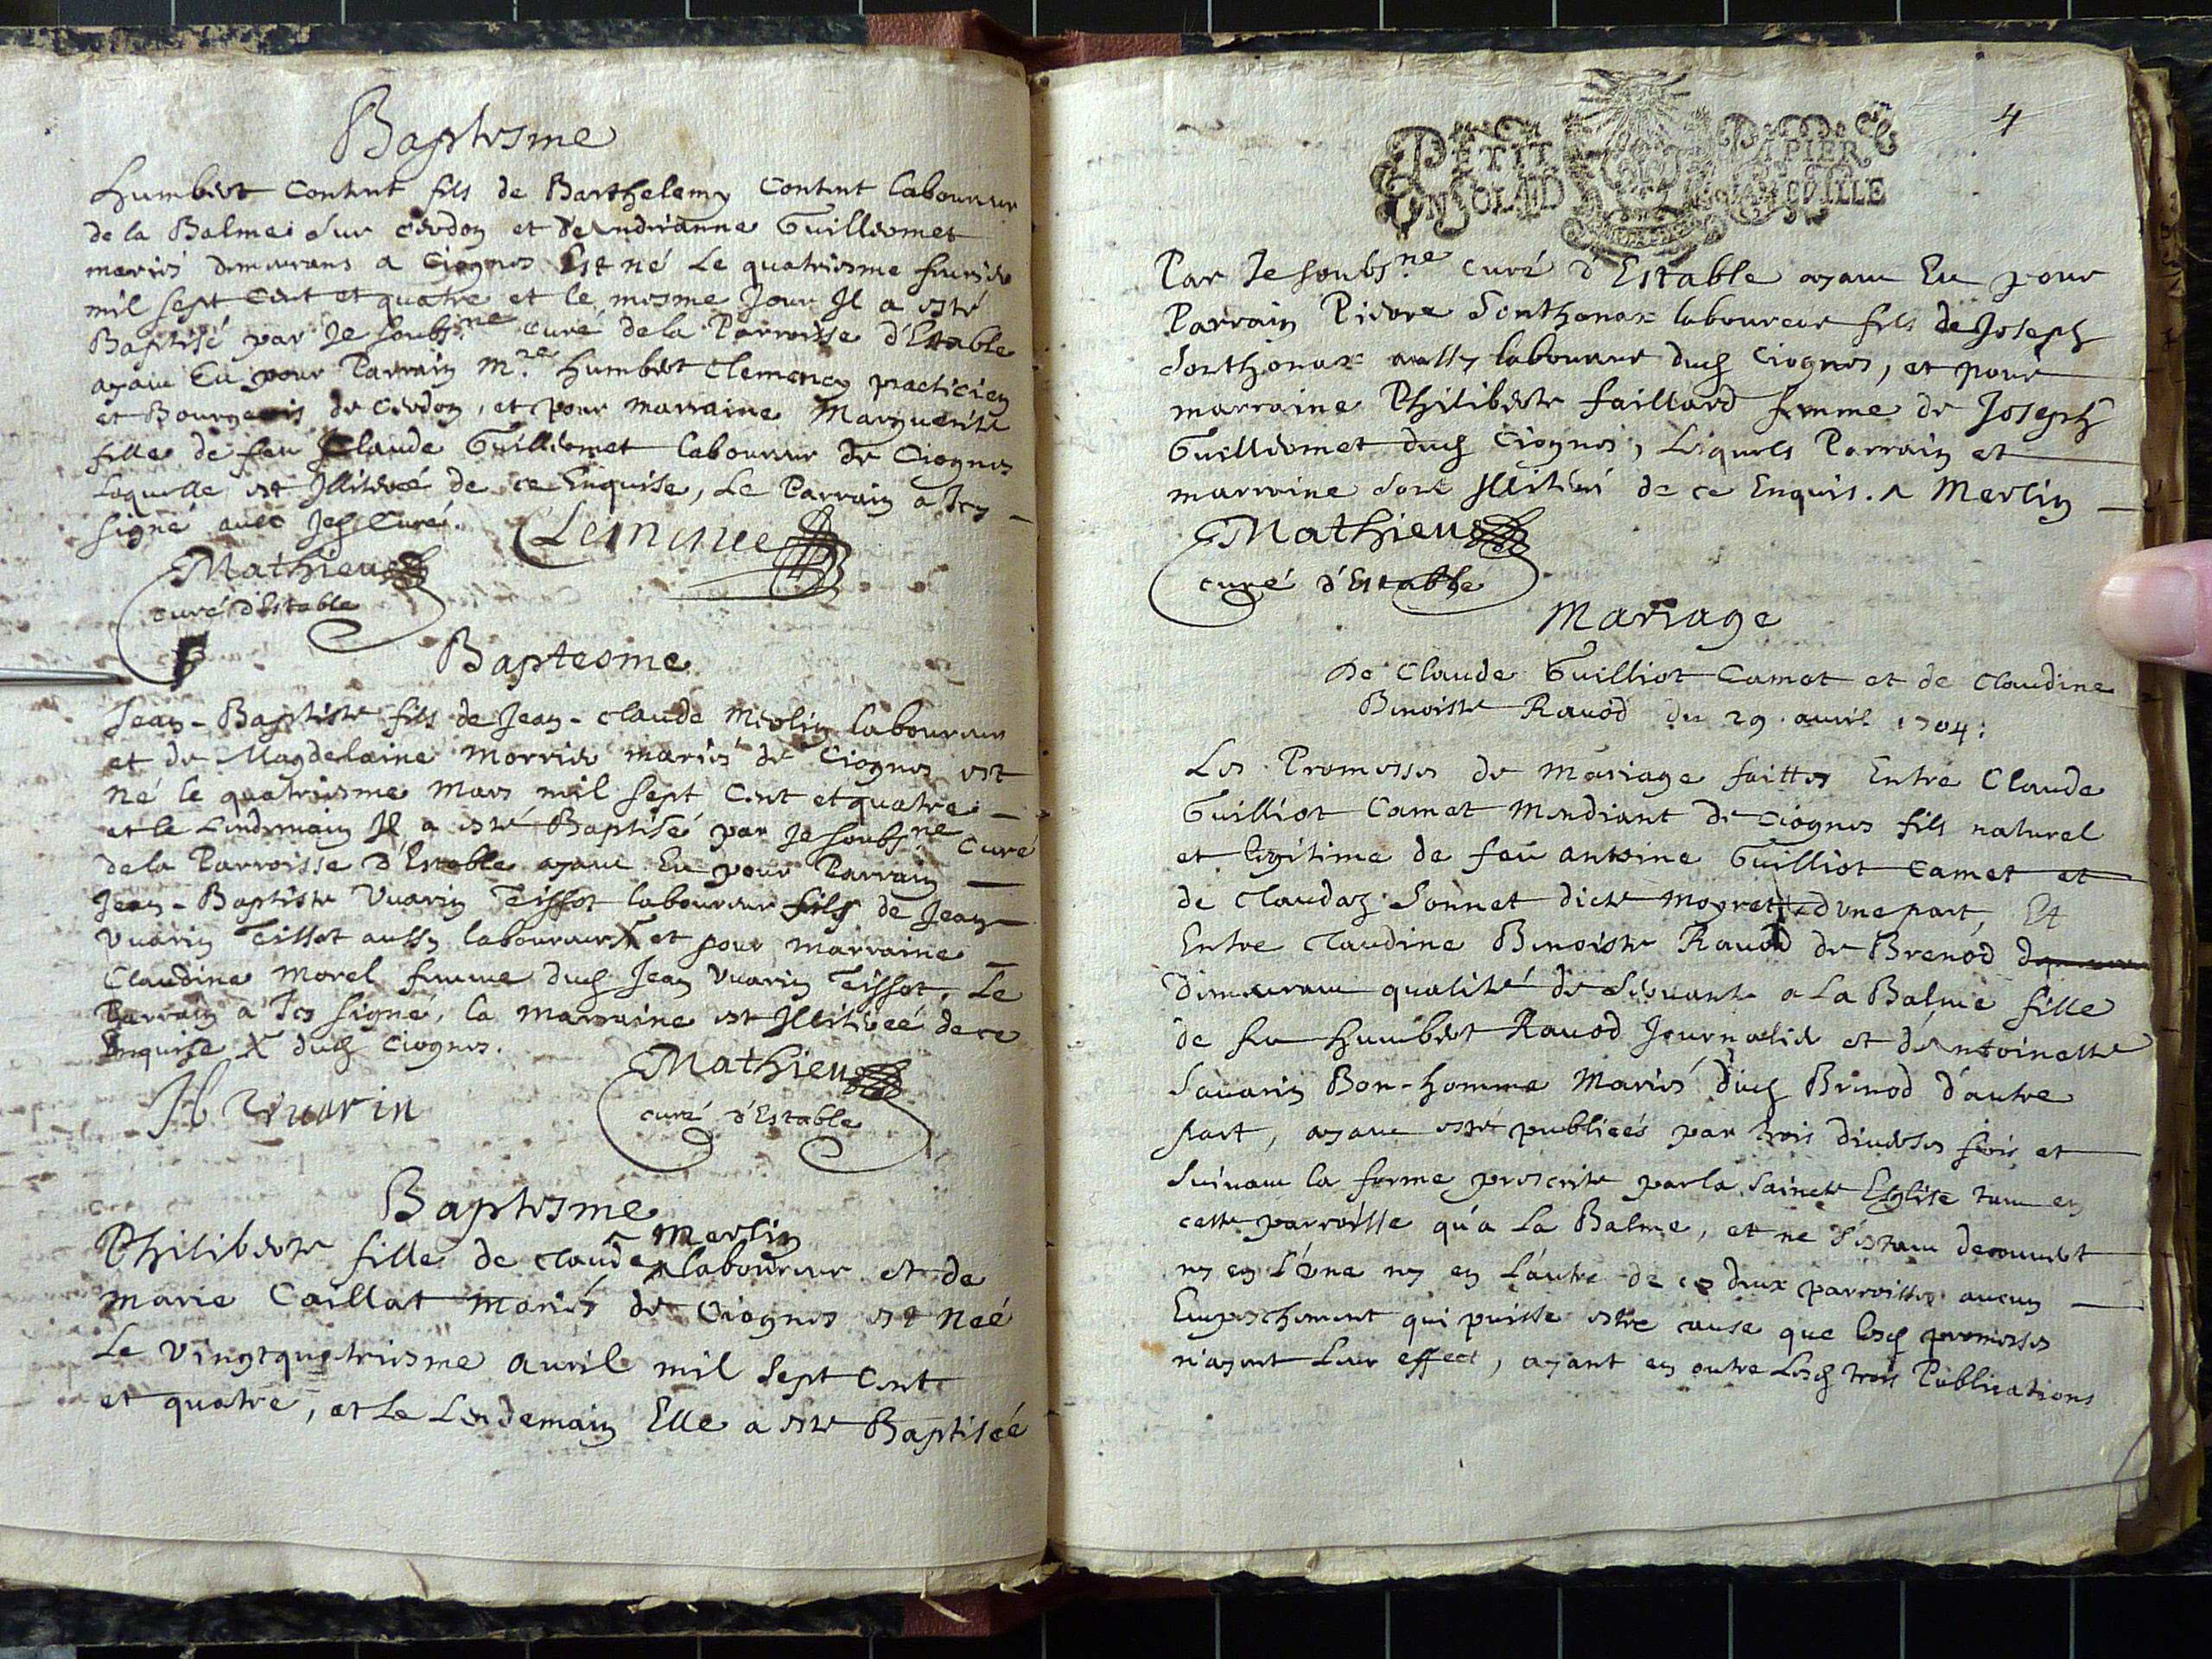 Baptesme
Humbert Contet fils de Barthelemy Contet laboureur
de la Balme sur cerdon et d'Andrianne Guilliermet
mariés demeurans a Ciognes Est né Le quatriesme feurier
mil sept cent et quatre et le mesme Jour Il a esté
Baptisé par Je soubs.ne curé de la Parroisse d'Estable
ayant Eu pour Parrain m.re humbert Clemency practicien
et Bourgeois de Cerdon, et pour marraine Marguerite
fille de feu Claude Guilliermet laboureur de Ciognes
Laquelle est Illiterée de ce Enquise, Le Parrain a Icy
signé auec Jes Curé.
Clemence
Mathieu
curé d'Estable
Baptesme
Jean-Baptiste fils de Jean-Claude Merlin laboureur
et de Magdelaine Morrier mariés de Ciognes est
né le quatriesme Mars mil sept Cent et quatre
et le Lendemain Il a esté Baptisé par Je soubs.ne Curé
de la Parroisse d'Estable ayant Eu pour Parrain
Jean-Baptiste Vuarin Teissot laboureur fils de Jean
Vuarin Teissot aussy laboureur X et pour marraine
Claudine Morel femme dud Jean Vuarin Teissot. Le
Parrain a Icy signé, la marraine est Illiterée de ce
Enquise X dud Ciognes.
JB Vuarin
Mathieu
curé d'Estable
Baptesme
Merlin
Philiberte fille de Claude laboureur et de
Marie Caillat mariés de Ciognes est Neé
Le vingtquatriesme auril mil sept Cent
et quatre, et Le Lendemain Elle a esté Baptiseé
4
PETIT PAPIER
Par Je soubs.ne curé d'Estable ayant Eu pour
Parrain Pierre Sonthonax laboureur fils de Joseph
Sonthonax aussy laboureur dud Ciognes, et pour
marraine Philiberte faillard femme de Joseph
Guilliermet dud Ciognes, Lesquels Parrain et
marraine sont Illiterés de ce Enquis. ^ Merlin
Mathieu
curé d'Estable
Mariage
De Claude Guilliot Camet et de Claudine
Benoiste Rauod du 29 auril 1704:
Les Promesses de Mariage faittes Entre Claude
Guilliot Camet Mendiant de Ciognes fils naturel
et legitime de feu antoine Guilliot Camet et
de Claudaz Sonnet dicte Moyret d'une part, Et
Entre Claudine Benoiste Rauod de Brenod
Demeurant qualité de Seruante a La Balme fille
de feu humbert Rauod Journalier et d'Antoinette
Sauarin Bon-homme Mariés dud Brenod d'autre
part, ayant esté publieés par trois diuerses fois et
suiuant la forme prescrite par la Saincte Eglise tant en
cette parroisse qu'a La Balme, et ne s'estant decouuert
ny en L'une ny en L'autre de ces deux parroisses aucun
Empeschement qui puisse estre cause que lesd promesses
n'ayent Leur effect, ayant en outre Lesd trois Publications